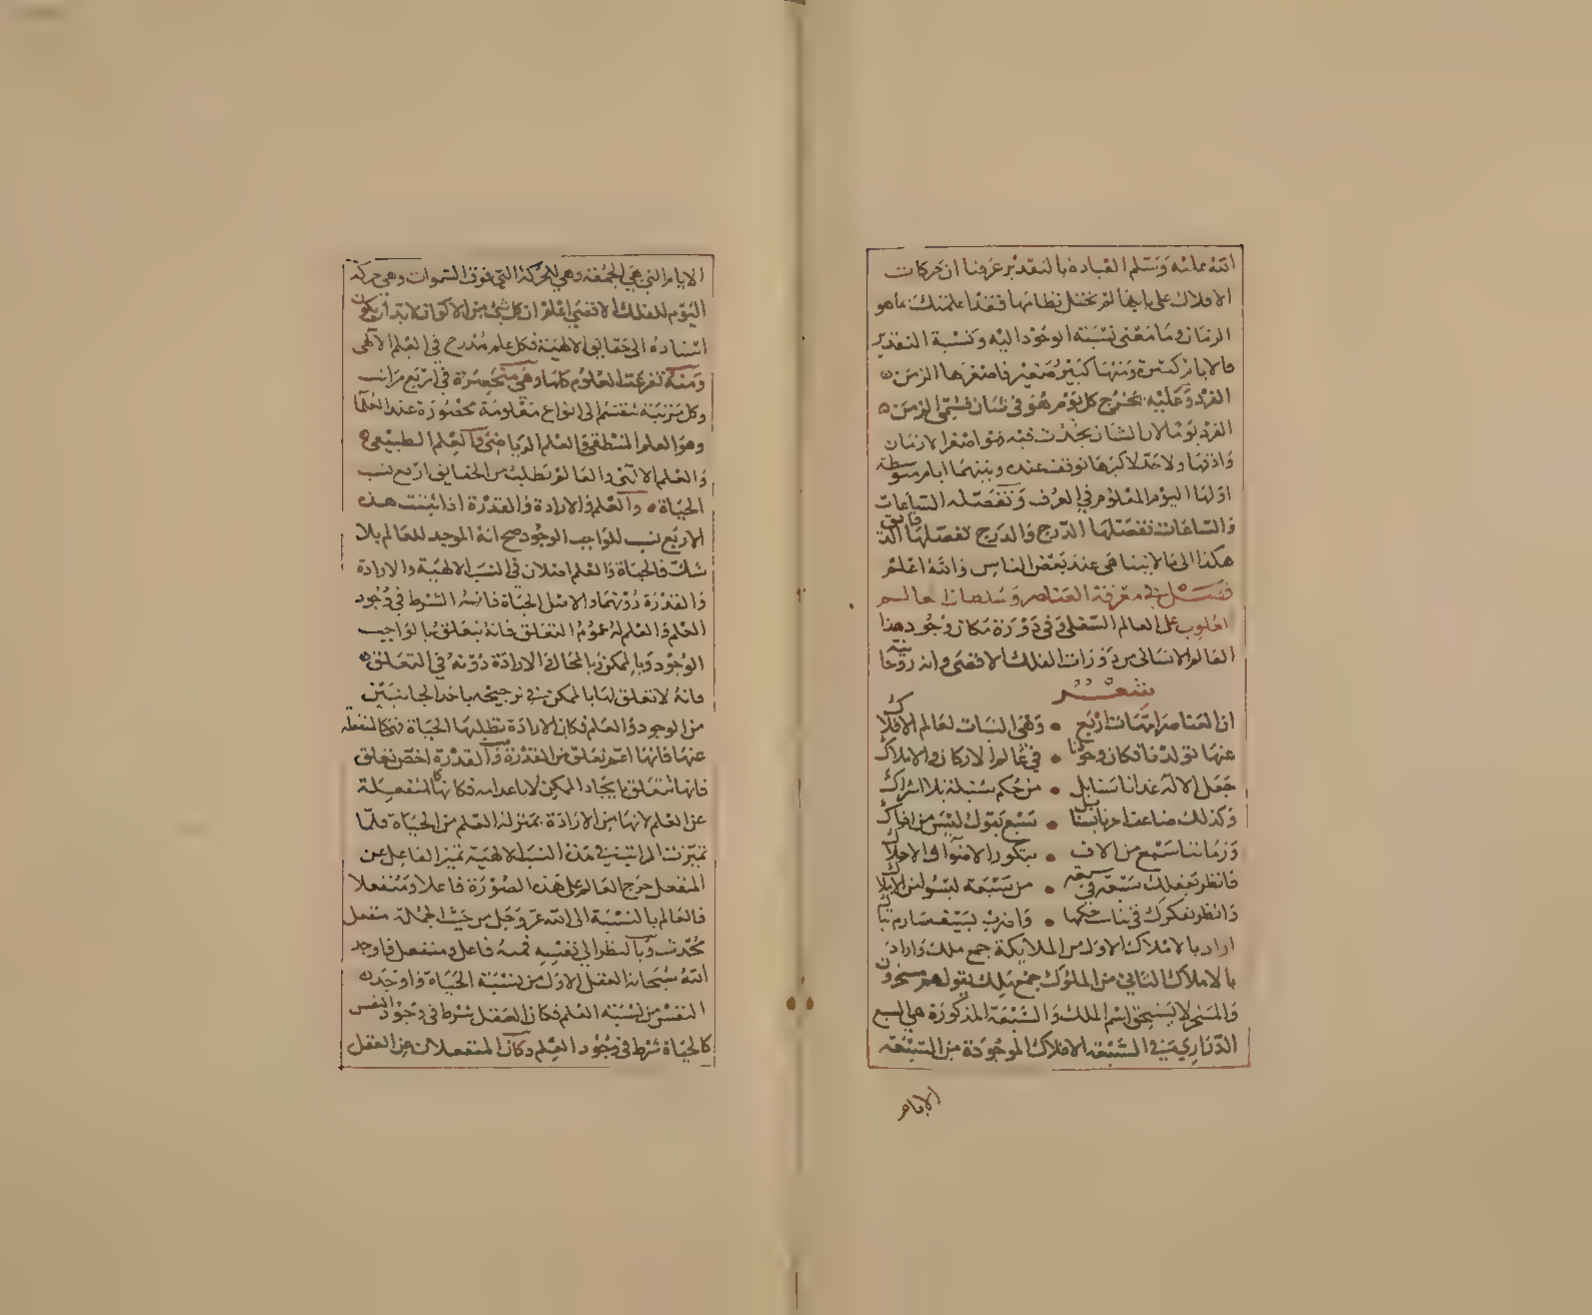 الله عليه وسلم العباده بالتقدير عرفنا ان حركات
الافلاك على بابها لم تختل نظامها فقد اعلمتك ما هو
الزمان وما معنى نسبته الوجود اليه ونسبة التقدير
فالايام كثيرة ومنها كبير وصغير فاصغرها الزمن
الفرد وعليه يخرج كل يوم هو في شان فسمى الزمن
الفرد يوما لان الشان يحدث فيه فهو اصغر الازمان
وادقها ولا حد لاكبرها توقف عنده وبينهما ايام متوسطة
اولها اليوم المعلوم في العرف وتفصله الساعات
والساعات تفصلها الدرج والدرج تفصلها الدقايق
هكذا الى ما لا يتناهى عند بعض الناس والله اعلم
فصــل في معرفة العناصر وسلطان عالم
العلوى على العالم السفلى وفي دورة كان وجود هذا
العالم الانسانى من دورات الفلك الاقصى وانه روحانية
شعــر
ان العناصر امهات اربع • وهى البنات لعالم الافلاك
عنها تولدنا فكان وجودنا • في عالم الاركان والاملاك
جعل الاله غذانا سنابل • من حكم سنبلة بلا اشراك
وكذلك ضاعف اجرنا بسنابل • سبع بقول ليس من افاك
وزماننا سبع من الاف • بتكور الاضوا والاحلاك
فانظر بعقلك سبعة في سبعة • من سبعة ليسوا من الاملاك
وانظر بفكرك في تناسخكها • واضرب بسيف صارم بتاك
اراد بالاملاك الاول من الملايكة جمع ملك واراد
بالاملاك الثاني من الملوك جمع ملك يقول هم مسخرون
والمسخر لا يستحق اسم الملك والسبعة المذكورة هي السبع
الدرارى في السبعة الافلاك الموجودة من السبعة
الايام
الايام التي هي الجمعة وهي للحركة التي فوق السموات وهي حركة
اليوم للفلك الاقصى اعلم ان كل شئ من الاكوان لا بد ان يكون
استناده الى حقايق الالهية فكل علم مدرج في العلم الالهى
ومنه تفرعت العلوم كلها وهي منحصرة في اربع مراتب
وكل مرتبة تنقسم الى انواع معلومة محصورة عند العلما
وهو العلم المنطقى والعلم الرياضى والعلم الطبيعى
والعلم الالهى والعالم يطلب من الحقايق اربع نسب
الحياة • والعلم والارادة والقدرة اذا ثبتت هذه
الاربع نسب للواجب الوجود صح انه الموجد للعالم بلا
شك فالحياة والعلم اصلان في النسب الالهية والارادة
والقدرة دونهما والاصل الحياة فانها الشرط في وجود
العلم والعلم له عموم التعلق فانه يتعلق بالواجب
الوجود وبالممكن وبالمحال والارادة دونه في التعلق
فانه لا تعلق لها بالممكن في ترجيحه باحد الجانبين
من الوجود والعدم فكان الارادة تطلبها الحياة فهي كالمنفعلة
عنها فانها اعم تعلق من القدرة والقدرة اخص تعلق
فانها تتعلق بايجاد الممكن لا باعدامه فكانها كالمنفعلة
عن العلم لانها من الارادة بمنزلة العلم من الحياة فلما
تميزت المراتب في هذه النسب الالهية تميز الفاعل عن
المنفعل خرج العالم على هذه الصورة فاعلا ومنفعلا
فالعالم بالنسبة الى الله عز وجل من حيث الجملة منفعل
محدث وبالنظر الى نفسه فمنه فاعل ومنفعل فاوجد
الله سبحانه العقل الاول من نسبة الحياة واوجد
النفس من نسبة العلم فكان العقل شرط في وجود النفس
كالحياة شرط في وجود العلم وكان المنفعلان عن العقل